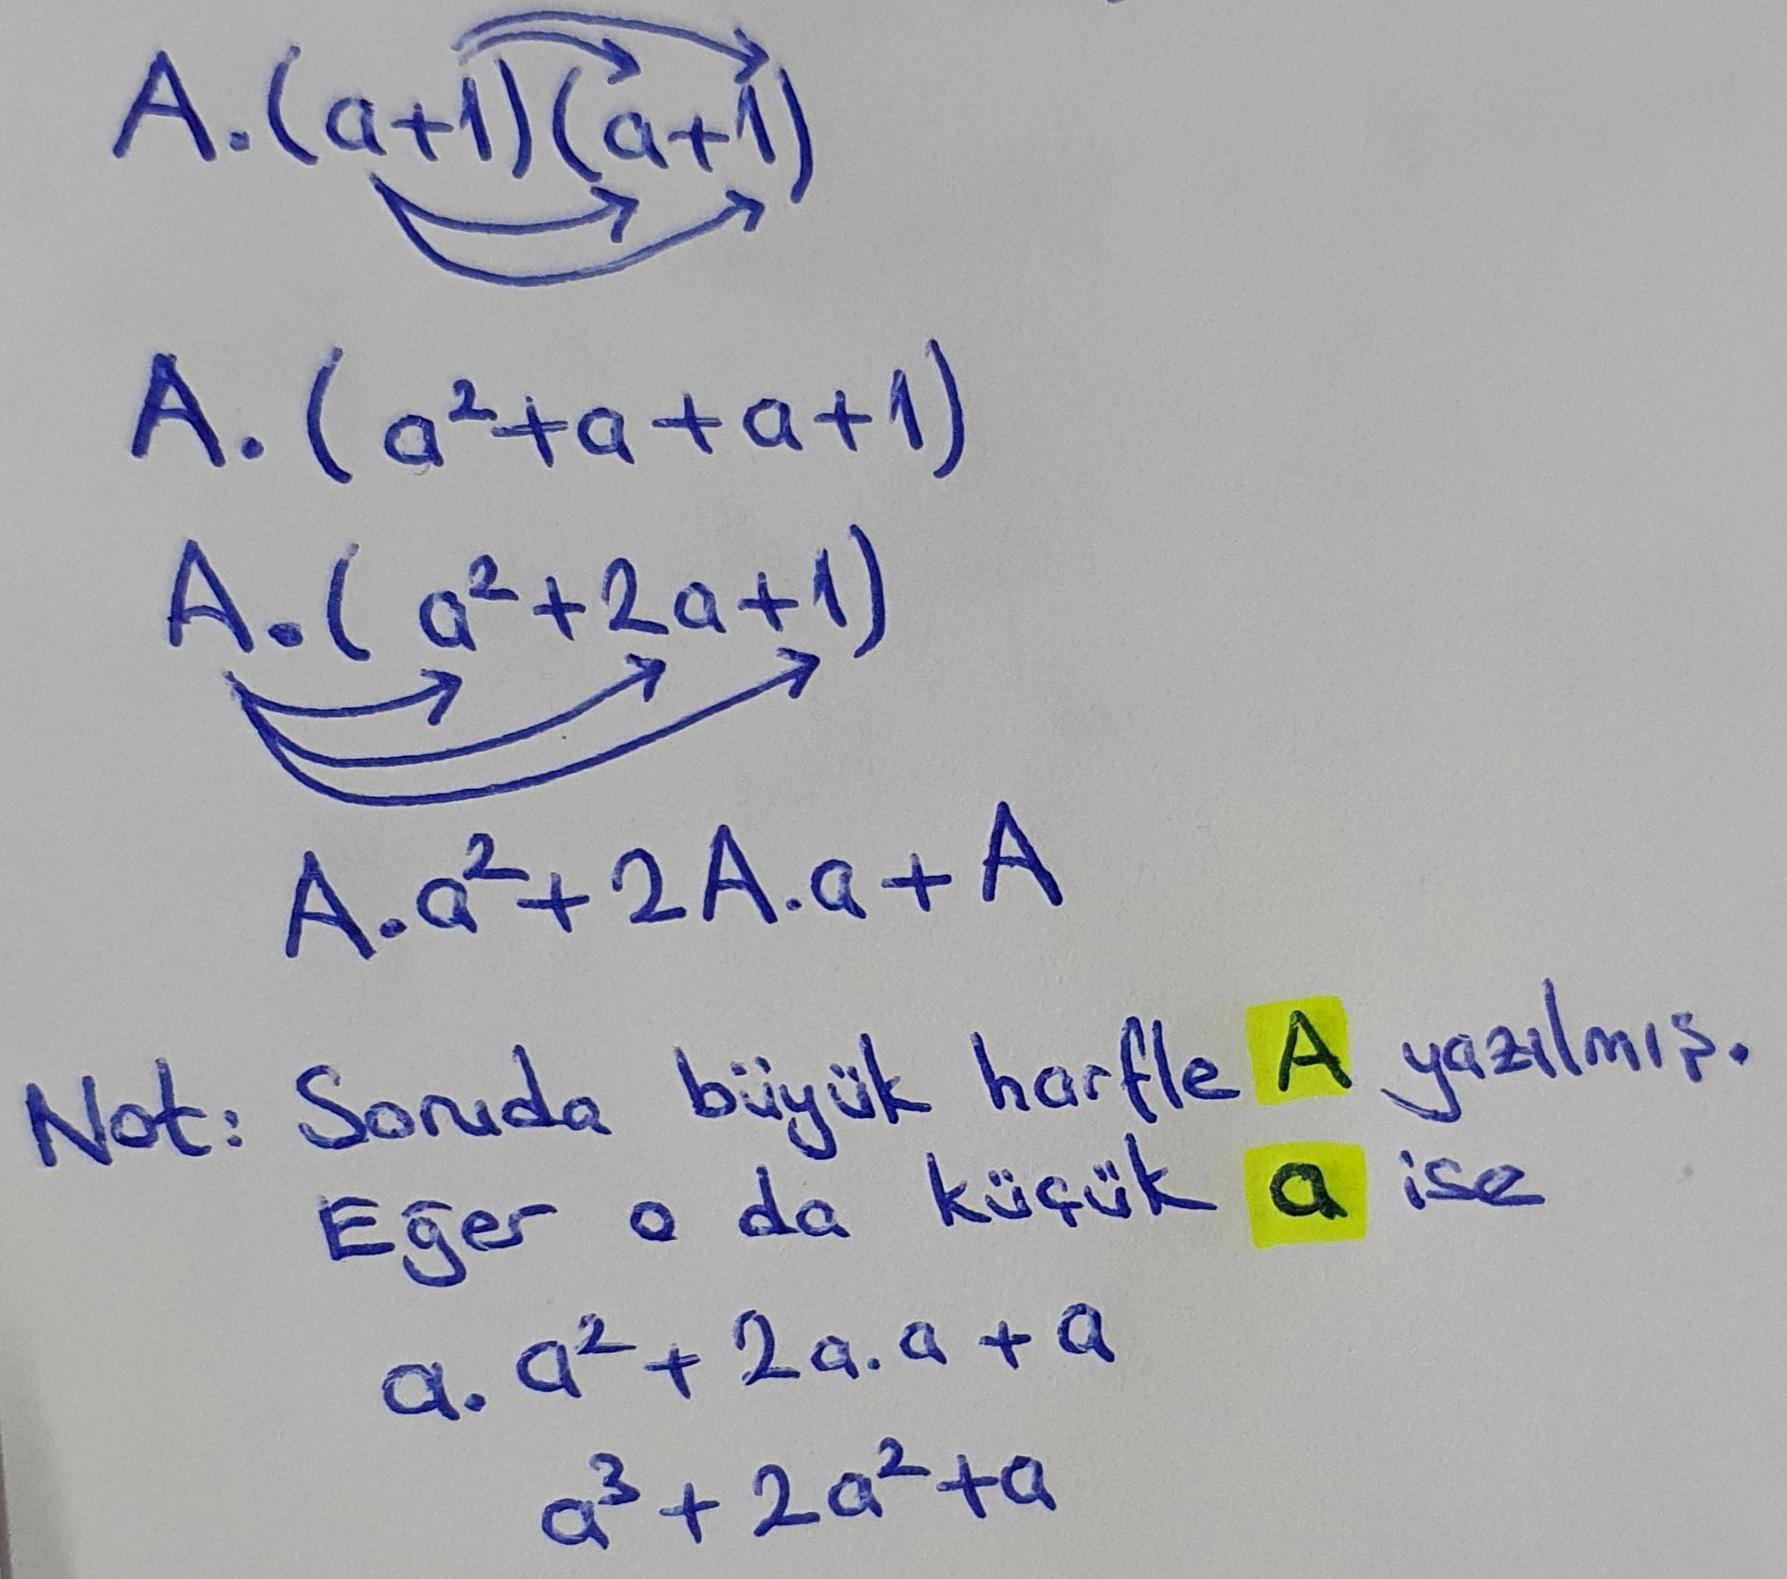 A.(a+1)(a+1)
A.(a²+a+a+1)
A.(a²+2a+1)
A.a²+2A.a+A
Not: Soruda büyük harfle A yazılmış.
Eğer o da küçük a ise
a.a²+2a.a+a
a³+2a²+a